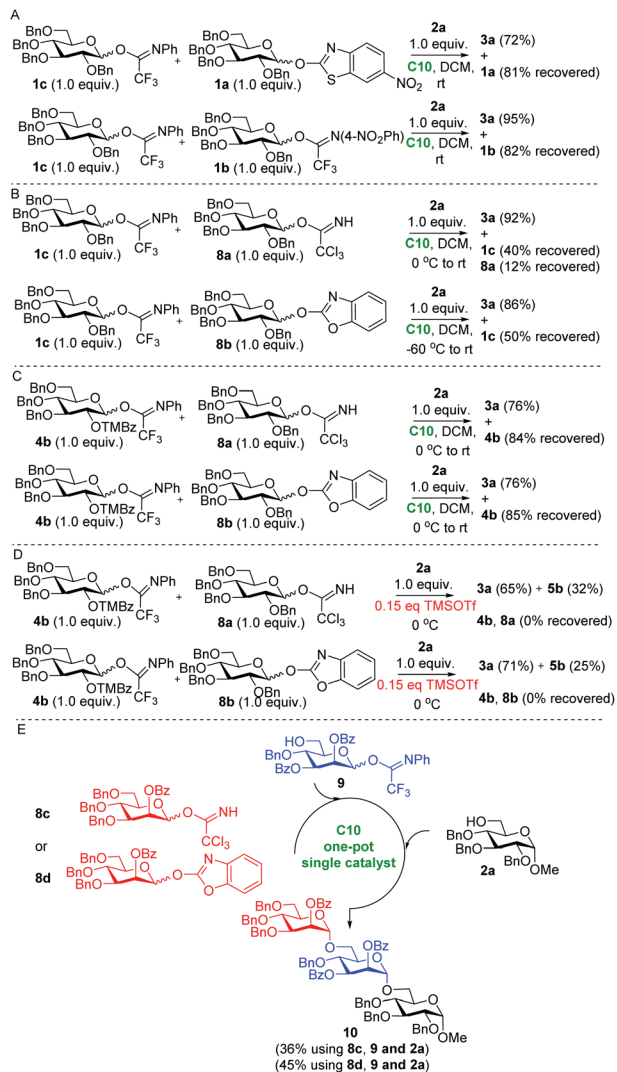 A
BnO BnO BnO O OBn O NPh CF3
1c (1.0 equiv.)
+
BnO BnO BnO O OBn O N S NO2
1a (1.0 equiv.)
2a
1.0 equiv.
C10, DCM,
rt
3a (72%)
+
1a (81% recovered)
BnO BnO BnO O OBn O NPh CF3
1c (1.0 equiv.)
+
BnO BnO BnO O OBn O N(4-NO2Ph) CF3
1b (1.0 equiv.)
2a
1.0 equiv.
C10, DCM,
rt
3a (95%)
+
1b (82% recovered)
B
BnO BnO BnO O OBn O NPh CF3
1c (1.0 equiv.)
+
BnO BnO BnO O OBn O NH CCl3
8a (1.0 equiv.)
2a
1.0 equiv.
C10, DCM,
0 °C to rt
3a (92%)
+
1c (40% recovered)
8a (12% recovered)
BnO BnO BnO O OBn O NPh CF3
1c (1.0 equiv.)
+
BnO BnO BnO O OBn O N O
8b (1.0 equiv.)
2a
1.0 equiv.
C10, DCM,
-60 °C to rt
3a (86%)
+
1c (50% recovered)
C
BnO BnO BnO O OTMBz O NPh CF3
4b (1.0 equiv.)
+
BnO BnO BnO O OBn O NH CCl3
8a (1.0 equiv.)
2a
1.0 equiv.
C10, DCM,
0 °C to rt
3a (76%)
+
4b (84% recovered)
BnO BnO BnO O OTMBz O NPh CF3
4b (1.0 equiv.)
+
BnO BnO BnO O OBn O N O
8b (1.0 equiv.)
2a
1.0 equiv.
C10, DCM,
0 °C to rt
3a (76%)
+
4b (85% recovered)
D
BnO BnO BnO O OTMBz O NPh CF3
4b (1.0 equiv.)
+
BnO BnO BnO O OBn O NH CCl3
8a (1.0 equiv.)
2a
1.0 equiv.
0.15 eq TMSOTf
0 °C
3a (65%) + 5b (32%)
4b, 8a (0% recovered)
BnO BnO BnO O OTMBz O NPh CF3
4b (1.0 equiv.)
+
BnO BnO BnO O OBn O N O
8b (1.0 equiv.)
2a
1.0 equiv.
0.15 eq TMSOTf
0 °C
3a (71%) + 5b (25%)
4b, 8b (0% recovered)
E
HO OBz BnO BzO O O NPh CF3
9
8c
BnO OBz BnO BnO O O NH CCl3
or
8d
BnO OBz BnO BnO O O N O
C10
one-pot
single catalyst
HO BnO BnO O BnO OMe
2a
BnO OBz BnO BnO O
O OBz BnO BzO O
O BnO BnO O BnO OMe
10
(36% using 8c, 9 and 2a)
(45% using 8d, 9 and 2a)